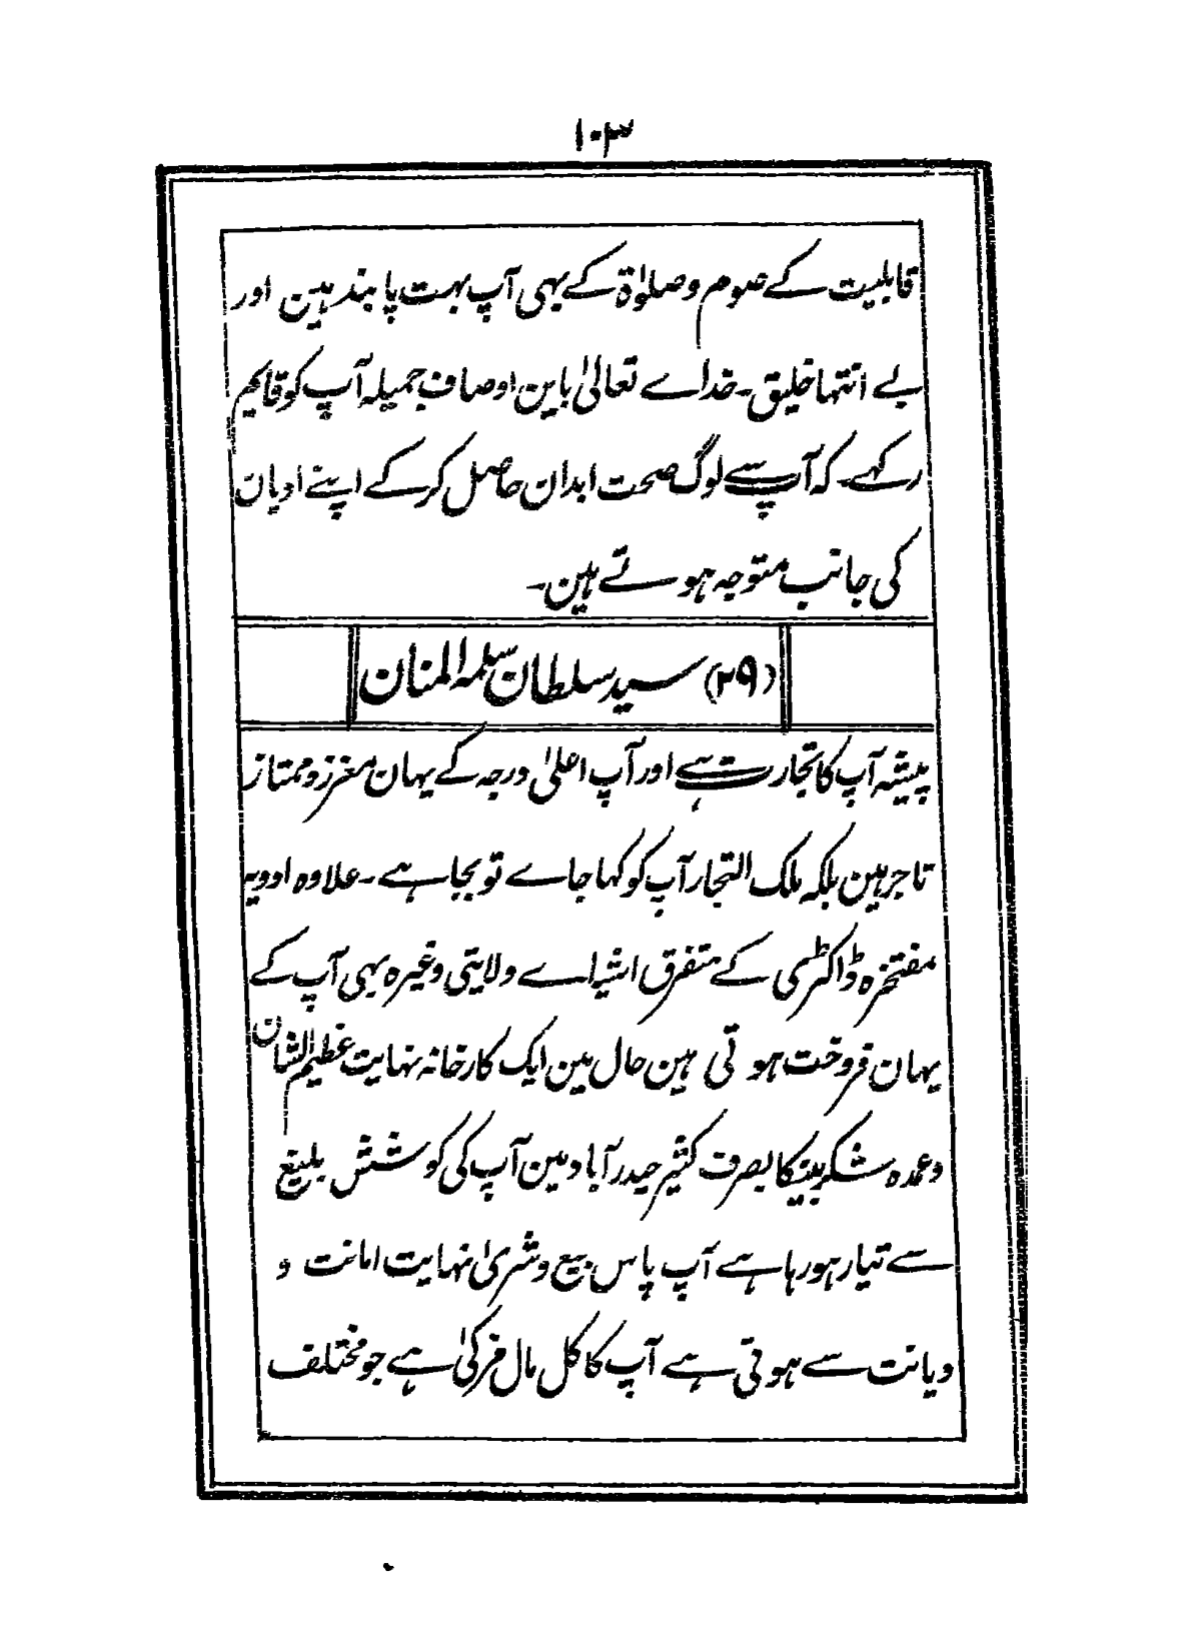 ۱۰۳
قابلیت کے صوم وصلوٰۃ کے بہی آپ بہت پابند ہین اور
بے انتہا خلیق۔ خداے تعالیٰ باین اوصاف جمیلہ آپ کو قایم
رکہے۔ کہ آپ سے لوگ صحت ابدان حاصل کر کے اپنے ادیان
کی جانب متوجہ ہوتے ہین۔
(۲۹) سید سلطان سلمہ المنان
پیشہ آپ کا تجارت ہے اور آپ اعلیٰ درجہ کے یہان معزز و ممتاز
تاجر ہین بلکہ ملک التجار آپ کو کہا جاے تو بجا ہے۔ علاوہ ادویہ
مفتخرہ ڈاکٹری کے متفرق اشیاے ولایتی وغیرہ بہی آپ کے
یہان فروخت ہوتی ہین حال مین ایک کارخانہ نہایت عظیم الشان
وعمدہ شکر بینکا بصرف کثیر حیدرآباد مین آپ کی کوشش بلیغ
سے تیار ہو رہا ہے آپ پاس بیع و شریٰ نہایت امانت و
دیانت سے ہوتی ہے آپ کا کل مال مزکیٰ ہے جو مختلف